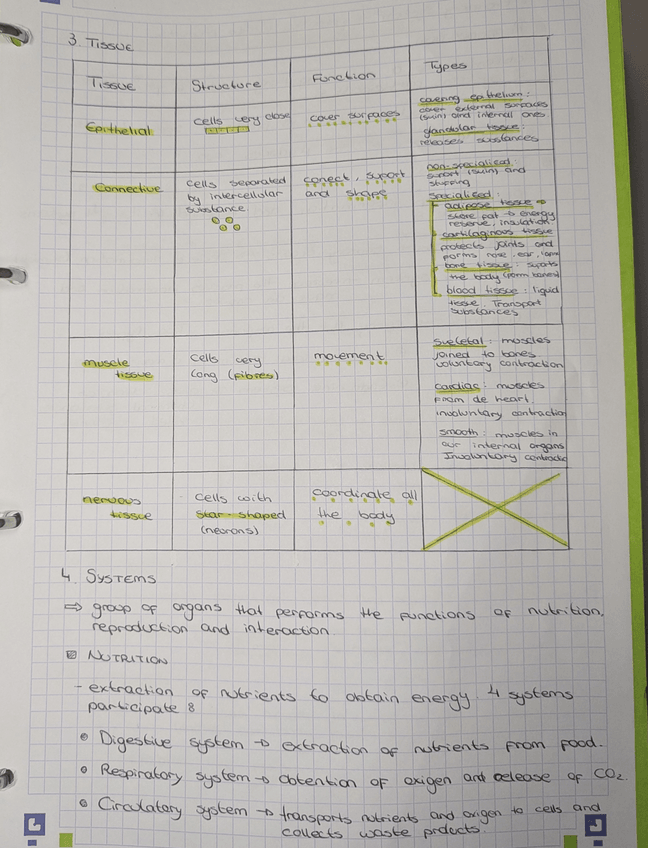 3. TISSUE
Tissue
Structure
Function
Types
Epithelial
cells very close
cover surfaces
covering epithelium:
cover external surfaces
(skin) and internal ones
glandular tissue:
releases substances
Connective
cells separated
by intercellular
substance
conect, suport
and shape
non-specialised:
suport (skin) and
shaping
Specialised:
adipose tissue →
store fat → energy
reserve, insulation.
cartilaginous tissue
protects joints and
forms nose, ear,
bone tissue: suports
the body (form bones)
blood tissue: liquid
tissue. Transport
substances
muscle
tissue
cells very
long (fibres)
movement
Skeletal: muscles
joined to bones
voluntary contraction
cardiac: muscles
from de heart.
involuntary contraction
smooth: muscles in
our internal organs
Involuntary contractio
nervous
tissue
cells with
star-shaped
(neurons)
coordinate all
the body
4. SYSTEMS
⇒ group of organs that performs the functions of nutrition,
reproduction and interaction.
NUTRITION
- extraction of nutrients to obtain energy. 4 systems
participate:
• Digestive system → extraction of nutrients from food.
• Respiratory system → obtention of oxigen and release of CO2.
• Circulatory system → transports nutrients and oxigen to cells and
collects waste prducts.